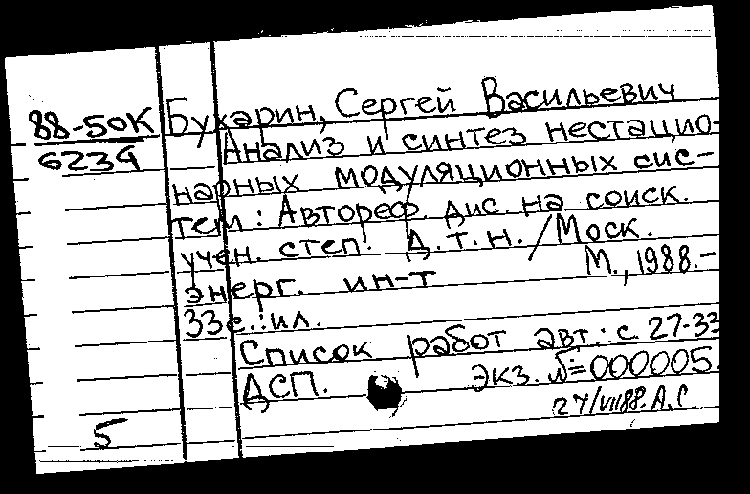 88-50К
6239
Бухарин, Сергей Васильевич
Анализ и синтез нестацио-
нарных модуляционных сис-
тем: Автореф. дис. на соиск.
учен. степ. д.т.н. / Моск.
энерг. ин-т М., 1988.-
33 с.: ил.
Список работ авт.: с. 27-33
ДСП. Экз. № 000005.
27/VII88. А.С
5